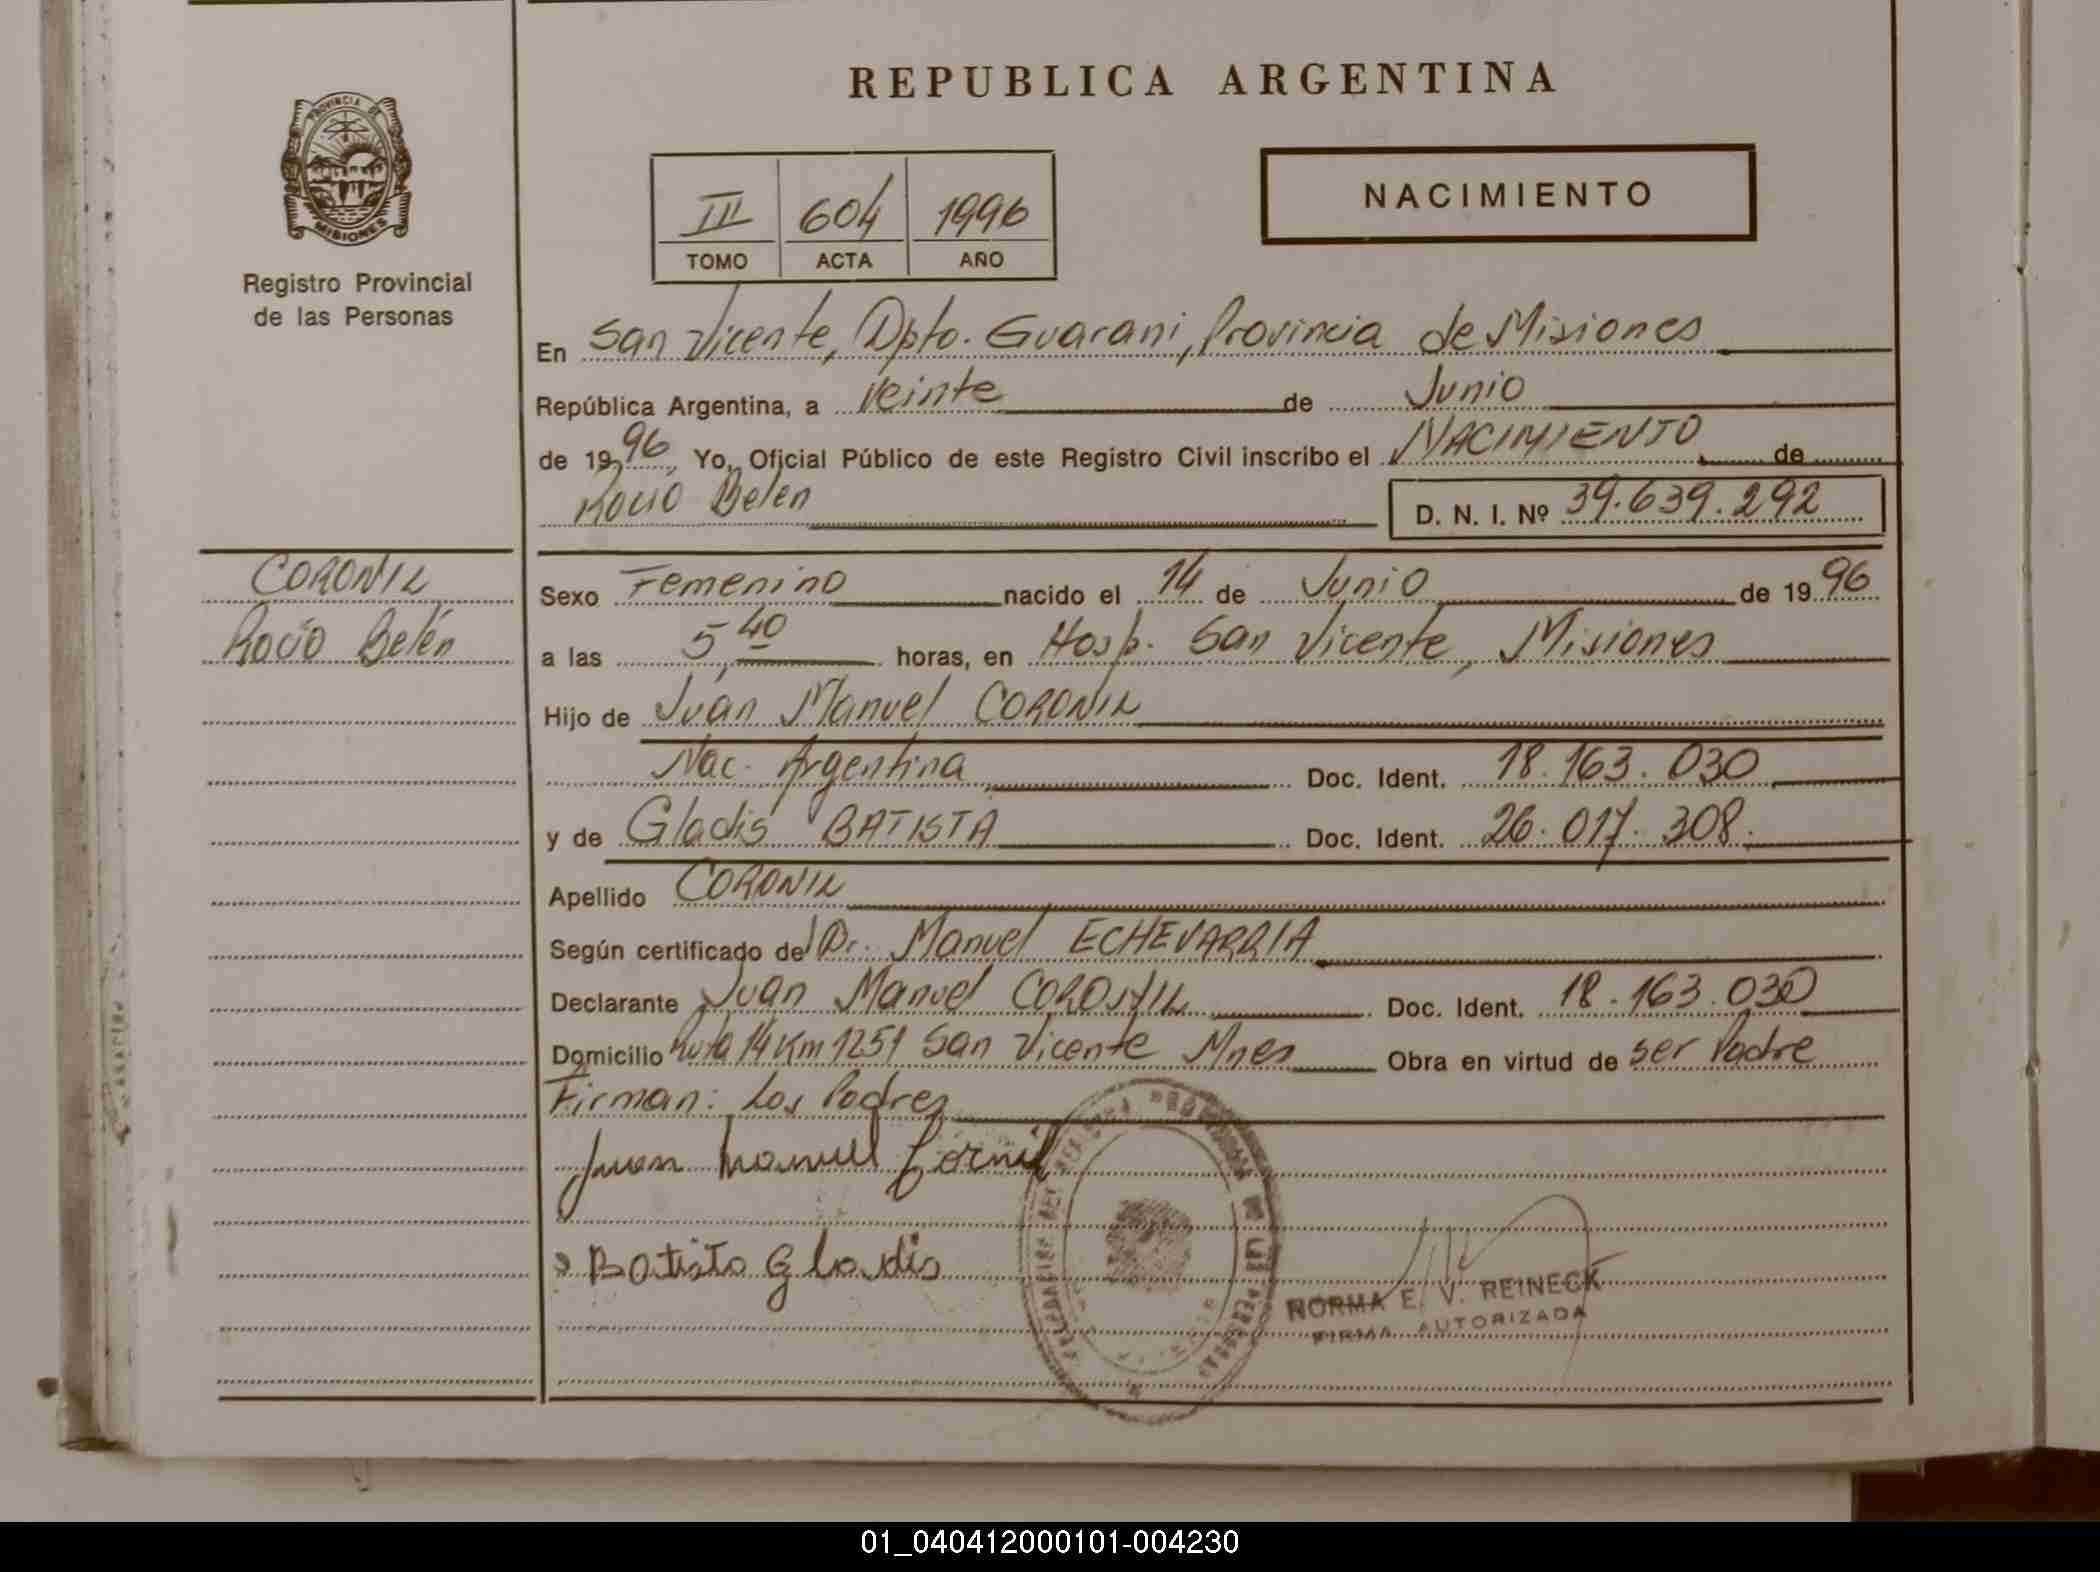 REPUBLICA ARGENTINA
PROVINCIA DE
MISIONES
Registro Provincial
de las Personas
III 604 1996
TOMO ACTA AÑO
NACIMIENTO
En San Vicente, Dpto. Guarani, Provincia de Misiones
República Argentina, a Veinte de Junio
de 1996, Yo, Oficial Público de este Registro Civil inscribo el NACIMIENTO de
Rocio Belén D. N. I. Nº 39.639.292
CORONIL
Rocío Belén
Sexo Femenino nacido el 14 de Junio de 1996
a las 5,40 horas, en Hosp. San Vicente, Misiones
Hijo de Juan Manuel CORONIL
Nac. Argentina Doc. Ident. 18.163.030
y de Gladis BATISTA Doc. Ident. 26.017.308.
Apellido CORONIL
Según certificado del Dr. Manuel ECHEVARRIA
Declarante Juan Manuel CORONIL Doc. Ident. 18.163.030
Domicilio Ruta 14 Km 1251 San Vicente Mnes Obra en virtud de ser Padre
Firman: Los Padres
Juan Manuel Cornil
Batista Gladis
NORMA E. V. REINECK
FIRMA AUTORIZADA
01_040412000101-004230